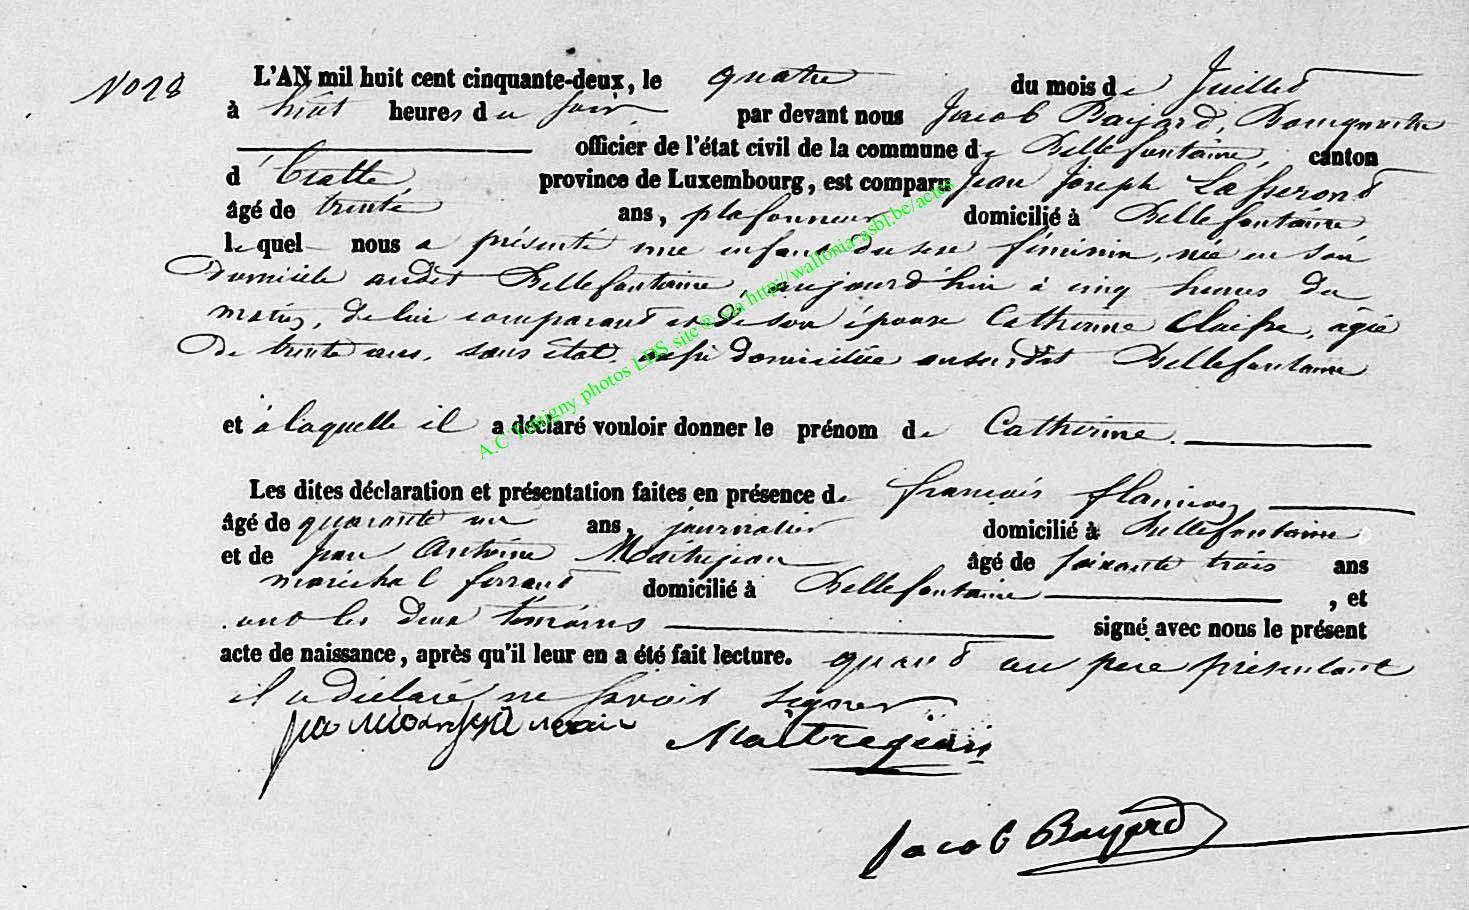 N° 28
L'AN mil huit cent cinquante-deux, le quatre du mois de Juillet
à huit heures du soir par devant nous Jacob Bayard, Bourgmestre
officier de l'état civil de la commune de Bellefontaine, canton
d'Etalle, province de Luxembourg, est comparu Jean Joseph
âgé de trente ans, plafonneur domicilié à Bellefontaine
lequel nous a présenté une enfant du sexe féminin, née en son
domicile audit Bellefontaine, aujourd'hui à cinq heures du
matin, de lui comparant et de son épouse Catherine âgée
de trente ans, sans état, aussi domiciliée audit Bellefontaine
et à laquelle il a déclaré vouloir donner le prénom de Catherine.
Les dites déclaration et présentation faites en présence de françois
âgé de quarante un ans, journalier domicilié à Bellefontaine
et de jean Antoine Maitrejean âgé de soixante trois ans
maréchal ferrant domicilié à Bellefontaine, et
ont les deux témoins signé avec nous le présent
acte de naissance, après qu'il leur en a été fait lecture. quant au pere présentant
il a déclaré ne savoir signer
Maitrejean
Jacob Bayard
A.C Tintigny photos LDS site® via http://wallonia-asbl.be/actes